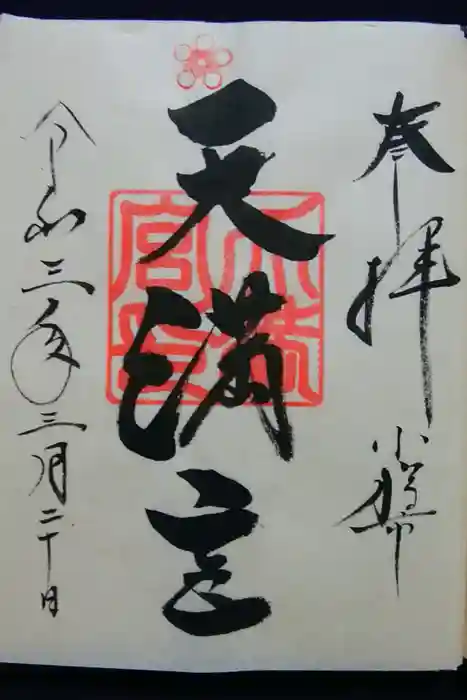 奉拝
天満宮
天満宮印
令和三年三月二十日